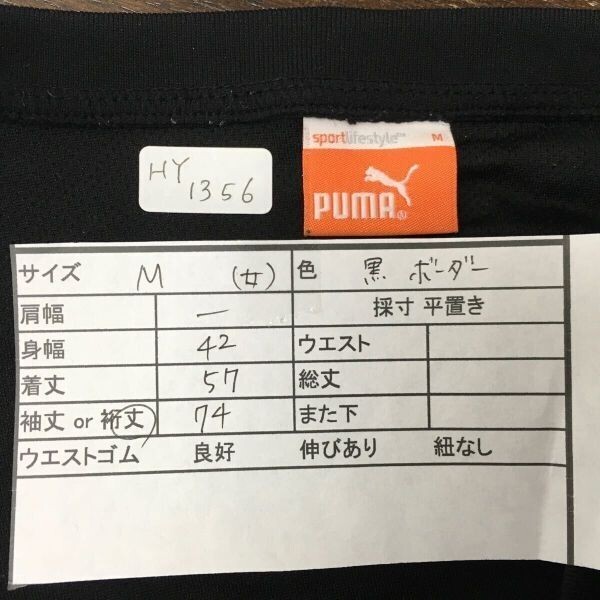 sportlifestyle™ M
PUMA®
HY
1356
サイズ M (女) 色 黒 ボーダー
肩幅 — 採寸 平置き
身幅 42 ウエスト
着丈 57 総丈
袖丈 or 裄丈 74 また下
ウエストゴム 良好 伸びあり 紐なし